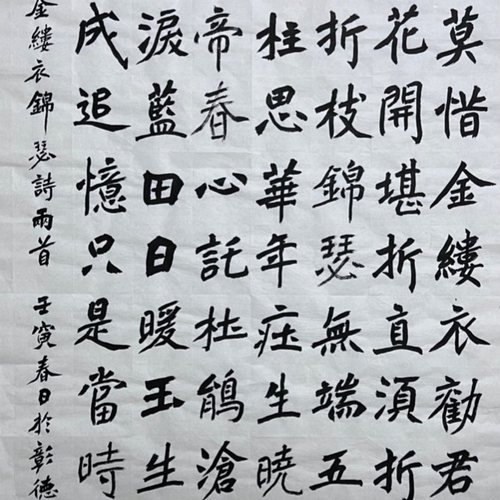 莫惜金縷衣勸君
花開堪折直須折
折枝錦瑟無端五
柱思華年庄生曉
帝春心託杜鵑滄
淚藍田日暖玉生
成追憶只是當時
金縷衣錦瑟詩兩首 壬寅春日於彰德